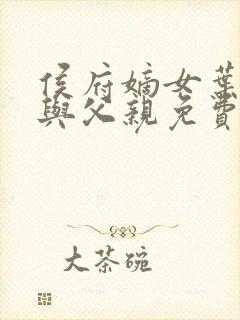 侯府嫡女葉
與父親免費
大茶碗